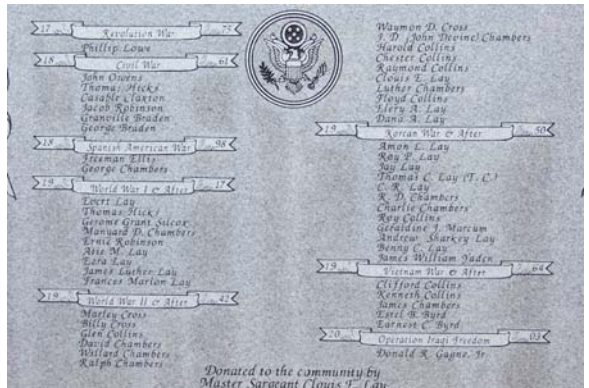 17 Revolution War 75
Phillip Lowe
18 Civil War 61
John Owens
Thomas Hicks
Casable Claxton
Jacob Robinson
Granville Braden
George Braden
18 Spanish American War 98
Freeman Ellis
George Chambers
19 World War I & After 17
Evert Lay
Thomas Hicks
Gerome Grant Silcox
Manyard D. Chambers
Ernie Robinson
Atie M. Lay
Ezra Lay
James Luther Lay
Frances Marion Lay
19 World War II & After 42
Marley Cross
Billy Cross
Glen Collins
David Chambers
Willard Chambers
Ralph Chambers
Waymon D. Cross
J. D. (John Devine) Chambers
Harold Collins
Chester Collins
Raymond Collins
Clouis E. Lay
Luther Chambers
Floyd Collins
Elery A. Lay
Dana A. Lay
19 Korean War & After 50
Amon L. Lay
Roy P. Lay
Jay Lay
Thomas C. Lay (T. C.)
C. R. Lay
R. D. Chambers
Charlie Chambers
Roy Collins
Geraldine J. Marcum
Andrew Sharkey Lay
Benny C. Lay
James William Jaden
19 Vietnam War & After 64
Clifford Collins
Kenneth Collins
James Chambers
Estel B. Byrd
Earnest C. Byrd
20 Operation Iraqi Freedom 03
Donald R. Gagne, Jr.
Donated to the community by
Master Sargeant Clouis E. Lay